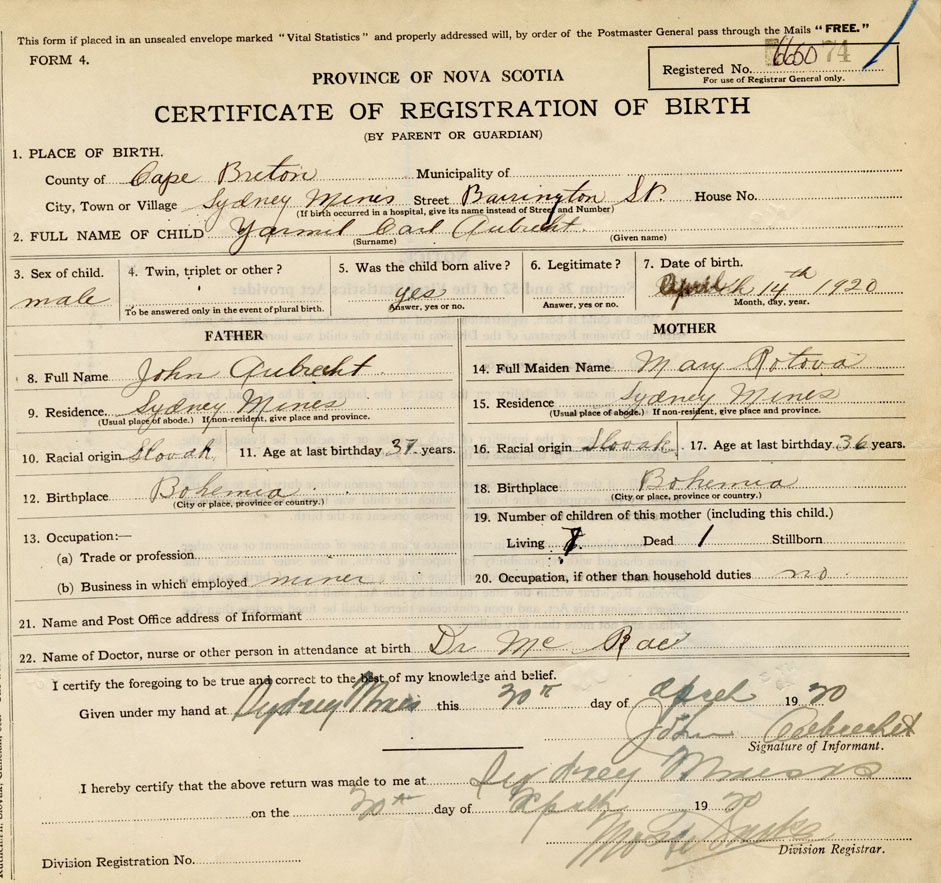 This form if placed in an unsealed envelope marked "Vital Statistics" and properly addressed will, by order of the Postmaster General pass through the Mails "FREE."
FORM 4.
Registered No. 66074
For use of Registrar General only.
PROVINCE OF NOVA SCOTIA
CERTIFICATE OF REGISTRATION OF BIRTH
(BY PARENT OR GUARDIAN)
1. PLACE OF BIRTH.
County of Cape Breton Municipality of
City, Town or Village Sydney Mines Street Barrington St. House No.
(If birth occurred in a hospital, give its name instead of Street and Number)
2. FULL NAME OF CHILD Yarmil Carl Aubrecht
(Surname) (Given name)
3. Sex of child. 4. Twin, triplet or other? 5. Was the child born alive? 6. Legitimate? 7. Date of birth.
male yes April 14th 1920
To be answered only in the event of plural birth. Answer, yes or no. Answer, yes or no. Month, day, year.
FATHER MOTHER
8. Full Name John Aubrecht
14. Full Maiden Name Mary Rotova
9. Residence Sydney Mines
(Usual place of abode.) If non-resident, give place and province.
15. Residence Sydney Mines
(Usual place of abode.) If non-resident, give place and province.
10. Racial origin Slovak 11. Age at last birthday 37 years.
16. Racial origin Slovak 17. Age at last birthday 36 years.
12. Birthplace Bohemia
(City or place, province or country.)
18. Birthplace Bohemia
(City or place, province or country.)
13. Occupation:—
(a) Trade or profession
(b) Business in which employed miner
19. Number of children of this mother (including this child.)
Living 7 Dead 1 Stillborn
20. Occupation, if other than household duties no
21. Name and Post Office address of Informant
22. Name of Doctor, nurse or other person in attendance at birth Dr Mc Rae
I certify the foregoing to be true and correct to the best of my knowledge and belief.
Given under my hand at Sydney Mines this 30th day of April 1920
John Aubrecht
Signature of Informant.
I hereby certify that the above return was made to me at Sydney Mines
on the 30th day of April 1920
Division Registrar.
Division Registration No.